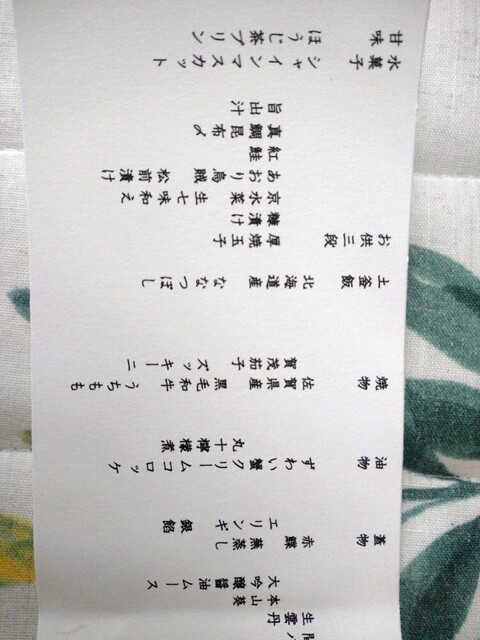 生雲丹
本山葵
大吟醸醤油ムース
蓋物 赤鰈 蕪蒸し
エリンギ 銀餡
油物 ずわい蟹クリームコロッケ
丸十檸檬煮
焼物 佐賀県産 黒毛和牛うちもも
賀茂茄子 ズッキーニ
土釜飯 北海道産 ななつぼし
お供三段 厚焼玉子
糠漬け
京水菜 生七味和え
あおり烏賊 松前漬け
紅鮭
真鯛昆布〆
旨出汁
水菓子 シャインマスカット
甘味 ほうじ茶プリン